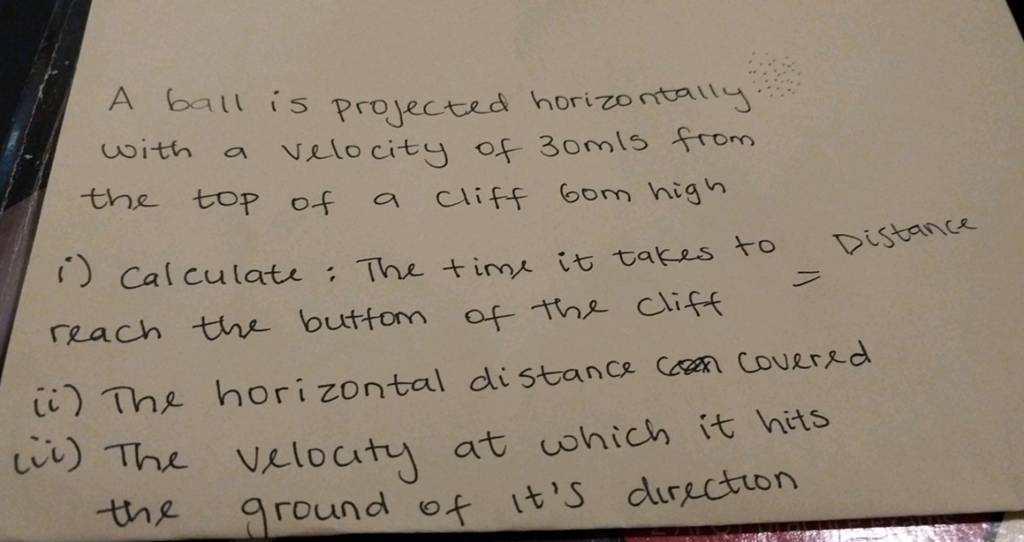 A ball is projected horizontally
with a velocity of 30m/s from
the top of a cliff 60m high
i) Calculate : The time it takes to = Distance
reach the buttom of the cliff
ii) The horizontal distance covered
iii) The velocity at which it hits
the ground of it's direction